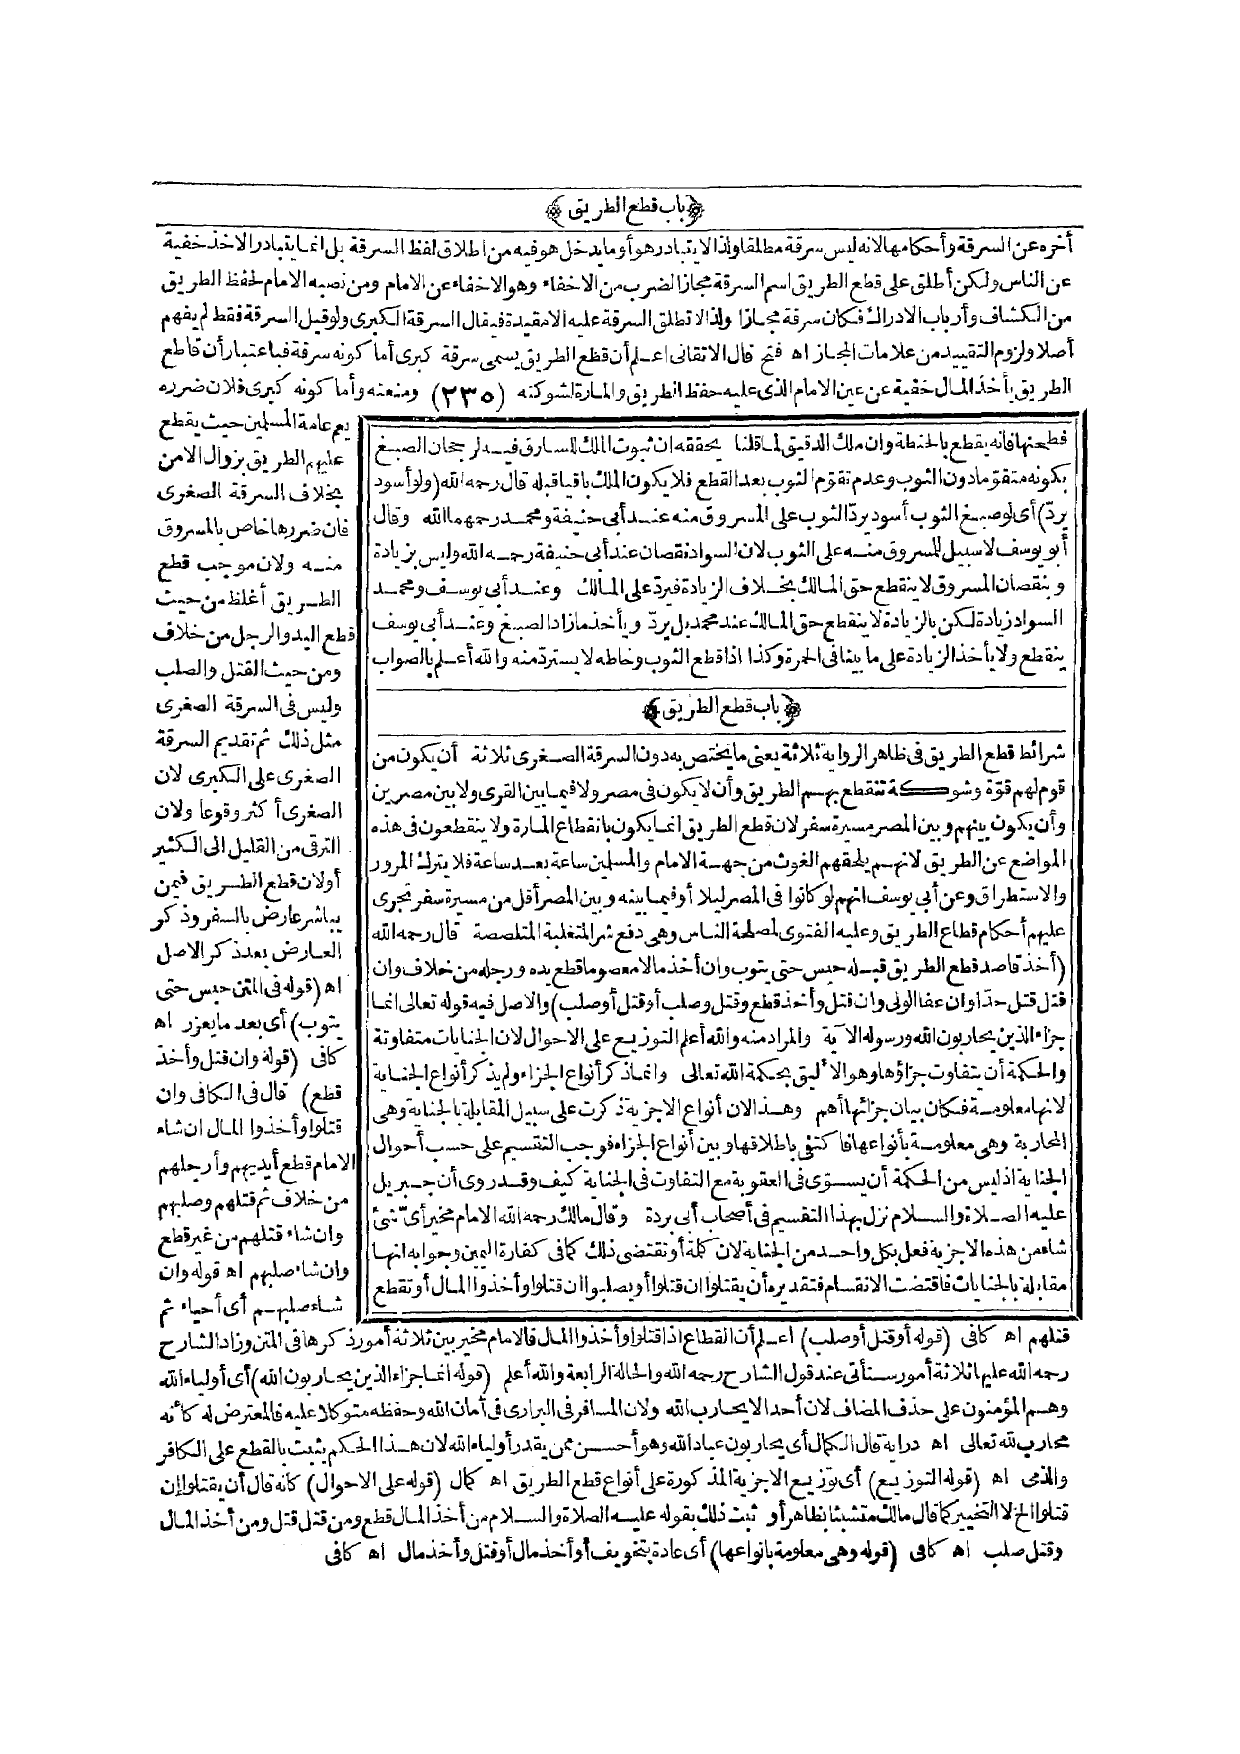 ﴿باب قطع الطريق﴾
أخره عن السرقة وأحكامها لانه ليس سرقة مطلقا ولذا لا يتبادر هو أو ما يدخل هو فيه من اطلاق لفظ السرقة بل انما يتبادر الاخذ خفية
عن الناس ولكن أطلق على قطع الطريق اسم السرقة مجازا لضرب من الاخفاء وهو الاخفاء عن الامام ومن نصبه الامام لحفظ الطريق
من الكشاف وأرباب الادراك فكان سرقة مجازا ولذا لا تطلق السرقة عليه الا مقيدة فيقال السرقة الكبرى ولو قيل السرقة فقط لم يفهم
أصلا ولزوم التقييد من علامات المجاز اه فتح قال الاتقانى اعلم أن قطع الطريق يسمى سرقة كبرى أما كونه سرقة فباعتبار أن قاطع
الطريق يأخذ المال خفية عن عين الامام الذى عليه حفظ الطريق والمارة لشوكته (٢٣٥) ومنعته وأما كونه كبرى فلان ضرره
يعم عامة المسلمين حيث يقطع
عليهم الطريق بزوال الامن
بخلاف السرقة الصغرى
فان ضررها خاص بالمسروق
منه ولان موجب قطع
الطريق أغلظ من حيث
قطع اليد والرجل من خلاف
ومن حيث القتل والصلب
وليس فى السرقة الصغرى
مثل ذلك ثم تقديم السرقة
الصغرى على الكبرى لان
الصغرى أكثر وقوعا ولان
الترقى من القليل الى الكثير
أولان قطع الطريق فيمن
يباشر عارض بالسفر وذكر
العارض بعد ذكر الاصل
اه (قوله فى المتن حبس حتى
يتوب) أى بعد ما يعزر اه
كافى (قوله وان قتل وأخذ
قطع) قال فى الكافى وان
قتلوا وأخذوا المال ان شاء
الامام قطع أيديهم وأرجلهم
من خلاف ثم قتلهم وصلبهم
وان شاء قتلهم من غير قطع
وان شاء صلبهم اه قوله وان
شاء صلبهم أى أحياء ثم
قطحنها فانه يقطع بالحنطة وان ملك الدقيق لما قلنا يحققه ان ثبوت الملك للسارق فيه لرجحان الصبغ
بكونه متقوما دون الثوب وعدم تقوم الثوب بعد القطع فلا يكون الملك باقيا قبله قال رحمه الله (ولو أسود
يردّ) أى لو صبغ الثوب أسود يردّ الثوب على المسروق منه عند أبى حنيفة ومحمد رحمهما الله وقال
أبو يوسف لا سبيل للمسروق منه على الثوب لان السواد نقصان عند أبى حنيفة رحمه الله وليس بزيادة
وبنقصان المسروق لا ينقطع حق المالك بخلاف الزيادة فيرد على المالك وعند أبى يوسف ومحمد
السواد زيادة لكن بالزيادة لا ينقطع حق المالك عند محمد بل يردّ ويأخذ ما زاد الصبغ وعند أبى يوسف
ينقطع ولا يأخذ الزيادة على ما بينا فى الحمرة وكذا اذا قطع الثوب وخاطه لا يسترد منه والله أعلم بالصواب
﴿باب قطع الطريق﴾
شرائط قطع الطريق فى ظاهر الرواية ثلاثة يعنى ما يختص به دون السرقة الصغرى ثلاثة أن يكون من
قوم لهم قوّة وشوكة تنقطع بهم الطريق وأن لا يكون فى مصر ولا فيما بين القرى ولا بين مصرين
وأن يكون بينهم وبين المصر مسيرة سفر لان قطع الطريق انما يكون بانقطاع المارة ولا ينقطعون فى هذه
المواضع عن الطريق لانهم يلحقهم الغوث من جهة الامام والمسلمين ساعة بعد ساعة فلا يترك المرور
والاستطراق وعن أبى يوسف انهم لو كانوا فى المصر ليلا أو فيما بينه وبين المصر أقل من مسيرة سفر تجرى
عليهم أحكام قطاع الطريق وعليه الفتوى لمصلحة الناس وهى دفع شر المتغلبة المتلصصة قال رحمه الله
(أخذ قاصد قطع الطريق قبله حبس حتى يتوب وان أخذ مالا معصوما قطع يده ورجله من خلاف وان
قتل قتل حدّا وان عفا الولى وان قتل وأخذ قطع وقتل وصلب أو قتل أو صلب) والاصل فيه قوله تعالى انما
جزاء الذين يحاربون الله ورسوله الآية والمراد منه والله أعلم التوزيع على الاحوال لان الجنايات متفاوتة
والحكمة أن يتفاوت جزاؤها وهو الأليق بحكمة الله تعالى وانما ذكر أنواع الجزاء ولم يذكر أنواع الجناية
لانها معلومة فكان بيان جزائها أهم وهذا لان أنواع الاجزية ذكرت على سبيل المقابلة بالجناية وهى
المحاربة وهى معلومة بأنواعها فاكتفى باطلاقها وبين أنواع الجزاء فوجب التقسيم على حسب أحوال
الجناية اذ ليس من الحكمة أن يسوّى فى العقوبة مع التفاوت فى الجناية كيف وقد روى أن جبريل
عليه الصلاة والسلام نزل بهذا التقسيم فى أصحاب أبى بردة وقال مالك رحمه الله الامام مخير أىّ شئ
شاء من هذه الاجزية فعل بكل واحد من الجناية لان كلمة أو تقتضى ذلك كما فى كفارة اليمين وجوابه انها
مقابلة بالجنايات فاقتضت الانقسام فتقديره أن يقتلوا ان قتلوا أو يصلبوا ان قتلوا وأخذوا المال أو تقطع
قتلهم اه كافى (قوله أو قتل أو صلب) اعلم أن القطاع اذا قتلوا وأخذوا المال فالامام مخير بين ثلاثة أمور ذكرها فى المتن وزاد الشارح
رحمه الله عليها ثلاثة أمور ستأتى عند قول الشارح رحمه الله والحالة الرابعة والله أعلم (قوله انما جزاء الذين يحاربون الله) أى أولياء الله
وهم المؤمنون على حذف المضاف لان أحدا لا يحارب الله ولان المسافر فى البرارى فى أمان الله وحفظه متوكلا عليه فالمعترض له كأنه
محارب لله تعالى اه دراية قال الكمال أى يحاربون عباد الله وهو أحسن ممن يقدر أولياء الله لان هذا الحكم يثبت بالقطع على الكافر
والذمى اه (قوله التوزيع) أى توزيع الاجزية المذكورة على أنواع قطع الطريق اه كمال (قوله على الاحوال) كانه قال أن يقتلوا إن
قتلوا الخ لا التخيير كما قال مالك متشبثا بظاهر أو ثبت ذلك بقوله عليه الصلاة والسلام من أخذ المال قطع ومن قتل قتل ومن أخذ المال
وقتل صلب اه كافى (قوله وهى معلومة بانواعها) أى عادة بتخويف أو أخذ مال أو قتل وأخذ مال اه كافى